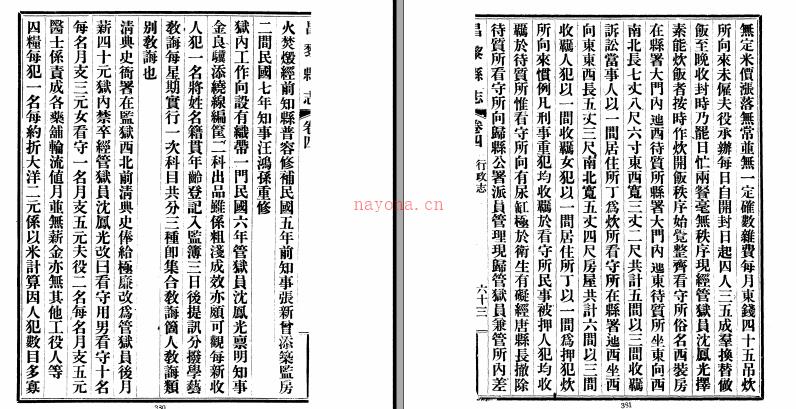 昌黎縣志 卷四
火焚燬經前知縣普容修補民國五年前知事張新曾添築監房
二間民國七年知事汪鴻孫重修
獄內工作向設有織帶一門民國六年管獄員沈鳳光稟明知事
金良驥添繞線編筐二科出品雖係粗淺成效亦頗可觀每新收
人犯一名將姓名籍貫年齡登記入監簿三日後提訊分撥學藝
教誨每星期實行一次科目共分三種即集合教誨箇人教誨類
別教誨也
清典史衙署在監獄西北前清典史俸給極廉改爲管獄員後月
薪四十元獄內禁卒經管獄員沈鳳光改曰看守用男看守十名
每名月支三元女看守一名月支五元夫役二名每名月支五元
醫士係責成各藥舖輪流值月並無薪金亦無其他工役人等
囚糧每犯一名每約折大洋二元係以米計算因人犯數目多寡
380
無定米價漲落無常並無一定確數雜費每月東錢四十五吊炊
所向來未僱夫役承辦每日自開封日起囚人三五成羣換替做
飯至晚收封時乃罷日忙兩餐毫無秩序現經管獄員沈鳳光擇
素能炊飯者按時作炊開飯秩序始覺整齊看守所俗名西裝房
在縣署大門內迤西待質所縣署大門內迤東待質所坐東向西
南北長七丈八尺六寸東西寬三丈二尺共計五間以三間收羈
訴訟當事人以一間居住所丁以一間爲炊所看守所在縣署迤西坐西
向東東西長五丈三尺南北寬五丈四尺房屋共計六間以三間
收羈人犯以一間收羈女犯以一間居住所丁以一間爲押犯炊
所向來慣例凡刑事重犯均收羈於看守所民事被押人犯均收
羈於待質所惟看守所向有尿缸極於衛生有礙經唐縣長撤除
待質所看守所向歸縣公署派員管理現歸管獄員兼管所內差
昌黎縣志 卷四 行政志 六十三
381
nayona.cn